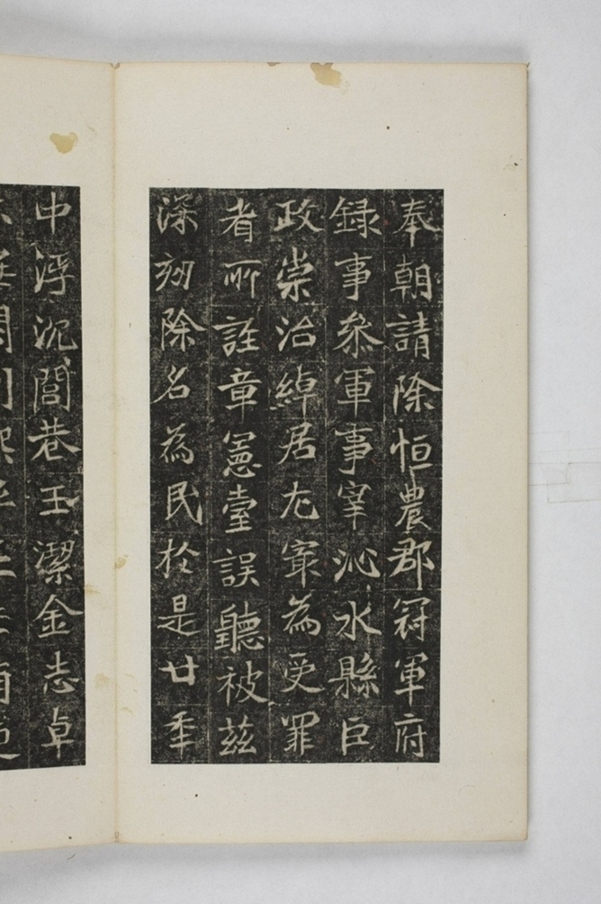 奉朝請除恒農郡冠軍府
録事叅軍事宰沁水縣巨
政崇治綽居尤冣為受罪
者所誣章憲臺誤聽被茲
深劾除名為民於是廿年
中浮沉閭巷玉潔金志卓